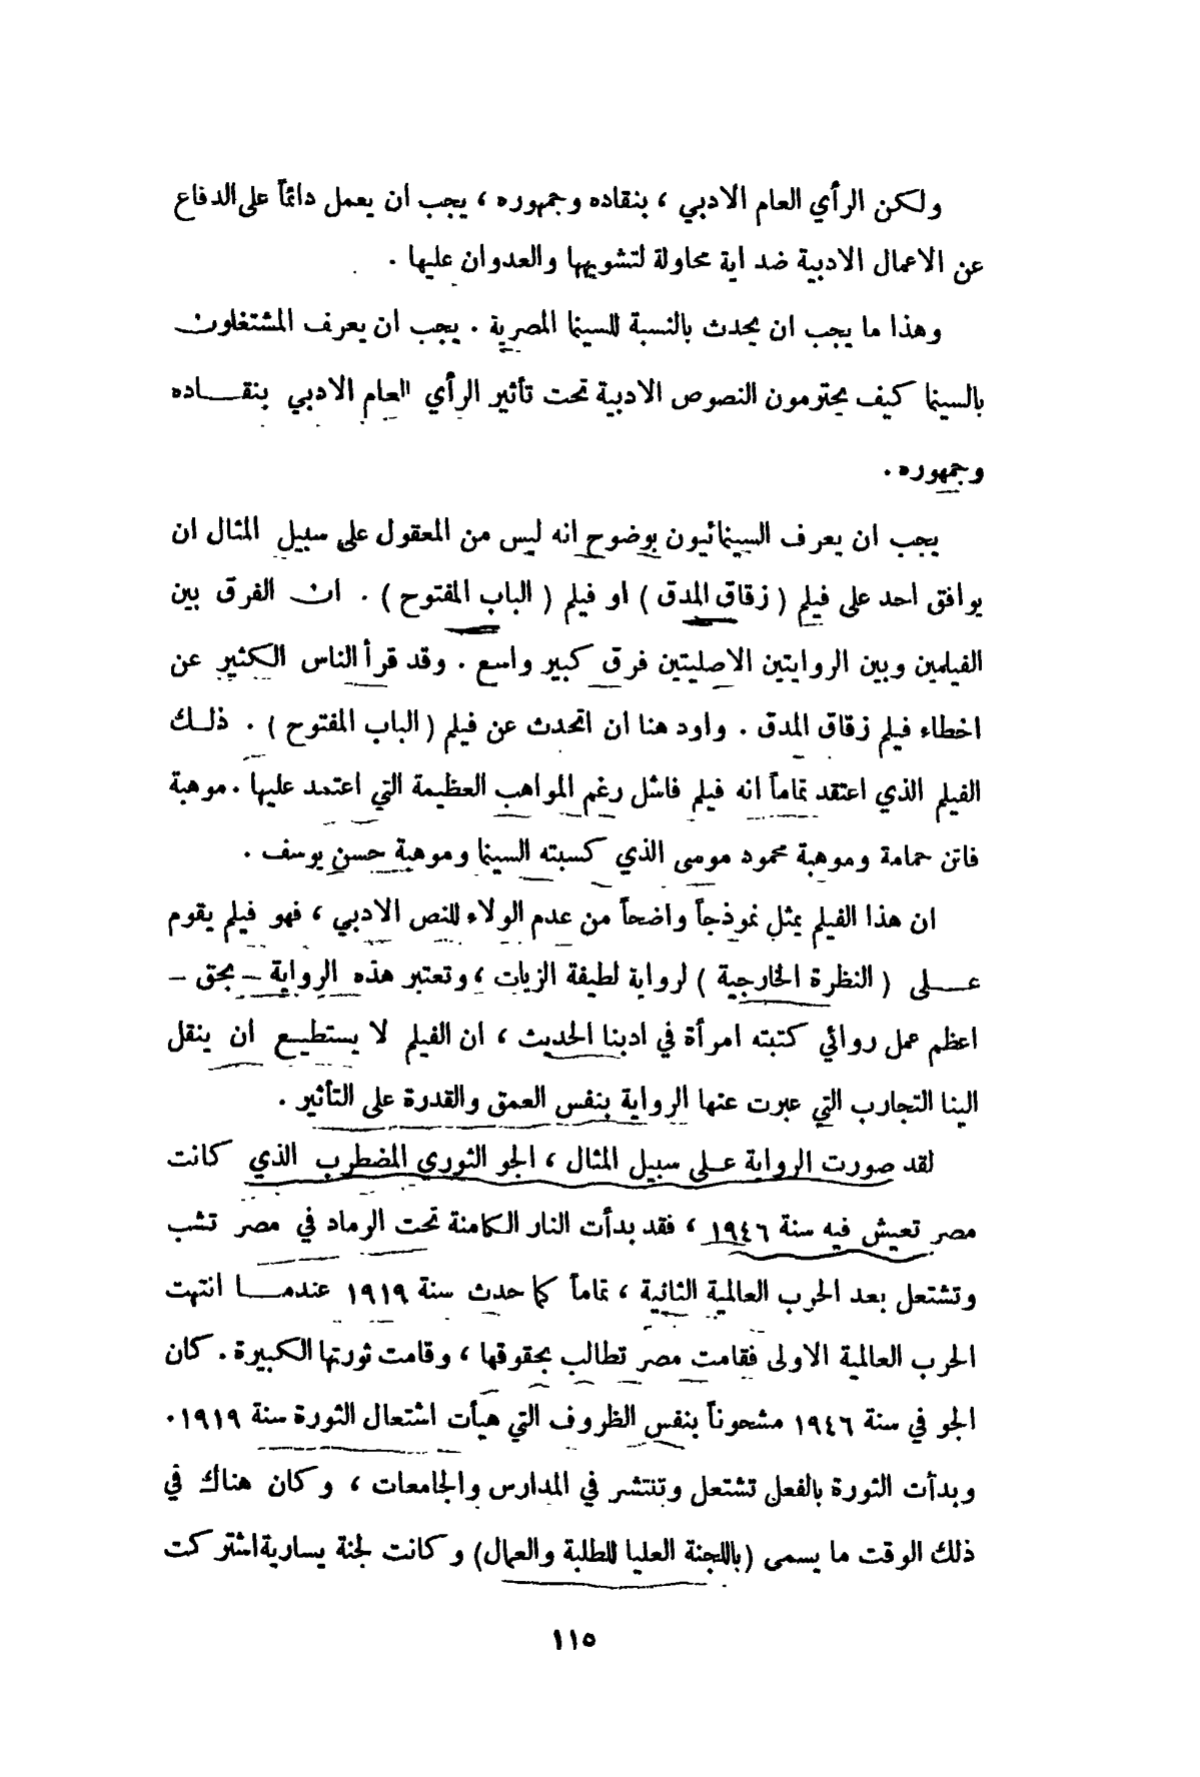 ولكن الرأي العام الادبي ، بنقاده وجمهوره ، يجب ان يعمل دائماً على الدفاع
عن الاعمال الادبية ضد اية محاولة لتشويهها والعدوان عليها .
وهذا ما يجب ان يحدث بالنسبة للسينما المصرية . يجب ان يعرف المشتغلون
بالسينما كيف يحترمون النصوص الادبية تحت تأثير الرأي العام الادبي بنقـــاده
وجمهوره .
يجب ان يعرف السينمائيون بوضوح انه ليس من المعقول على سبيل المثال ان
يوافق احد على فيلم ( زقاق المدق ) او فيلم ( الباب المفتوح ) . ان الفرق بين
الفيلمين وبين الروايتين الاصليتين فرق كبير واسع . وقد قرأ الناس الكثير عن
اخطاء فيلم زقاق المدق . واود هنا ان اتحدث عن فيلم ( الباب المفتوح ) . ذلــك
الفيلم الذي اعتقد تماماً انه فيلم فاشل رغم المواهب العظيمة التي اعتمد عليها . موهبة
فاتن حمامة وموهبة محمود موسى الذي كسبته السينما وموهبة حسن يوسف .
ان هذا الفيلم يمثل نموذجاً واضحاً من عدم الولاء للنص الادبي ، فهو فيلم يقوم
عـــلى ( النظرة الخارجية ) لرواية لطيفة الزيات ، وتعتبر هذه الرواية – بحق –
اعظم عمل روائي كتبته امرأة في ادبنا الحديث ، ان الفيلم لا يستطيــع ان ينقل
الينا التجارب التي عبرت عنها الرواية بنفس العمق والقدرة على التأثير .
لقد صورت الرواية عــلى سبيل المثال ، الجو الثوري المضطرب الذي كانت
مصر تعيش فيه سنة ١٩٤٦ ، فقد بدأت النار الكامنة تحت الرماد في مصر تشب
وتشتعل بعد الحرب العالمية الثانية ، تماماً كما حدث سنة ١٩١٩ عندمـــا انتهت
الحرب العالمية الاولى فقامت مصر تطالب بحقوقها ، وقامت ثورتها الكبيرة . كان
الجو في سنة ١٩٤٦ مشحوناً بنفس الظروف التي هيأت اشتعال الثورة سنة ١٩١٩ .
وبدأت الثورة بالفعل تشتعل وتنتشر في المدارس والجامعات ، وكان هناك في
ذلك الوقت ما يسمى (باللجنة العليا للطلبة والعمال) وكانت لجنة يسارية اشتركت
١١٥